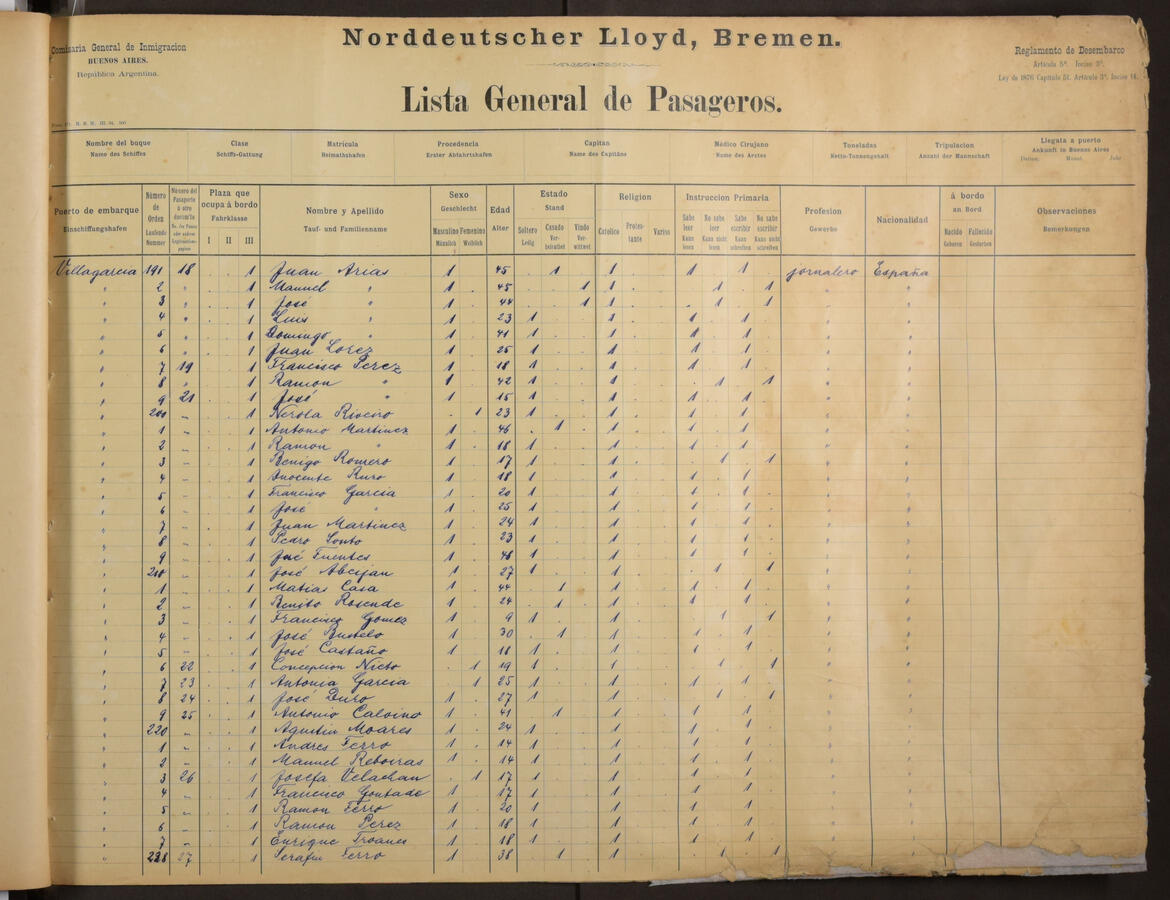 Norddeutscher Lloyd, Bremen.
Comisaria General de Inmigracion
BUENOS AIRES.
República Argentina.
Reglamento de Desembarco
Articulo 5º. Inciso 3º.
Ley de 1876 Capitulo 51. Articulo 3º. Inciso 14.
Lista General de Pasageros.
Nombre del buque Clase Matricula Procedencia Capitan Médico Cirujano Toneladas Tripulacion Llegata a puerto
Name des Schiffes Schiffs-Gattung Heimathshafen Erster Abfahrtshafen Name des Capitäns Name des Arztes Netto-Tonnengehalt Anzahl der Mannschaft Ankunft in Buenos Aires
Datum: Monat Jahr
Puerto de embarque Número de Orden Número del Pasaporte Plaza que ocupa á bordo Nombre y Apellido Sexo Edad Estado Religion Instruccion Primaria Profesion Nacionalidad á bordo Observaciones
Einschiffungshafen Laufende Nummer Fahrklasse Tauf- und Familienname Geschlecht Alter Stand Gewerbe an Bord Bemerkungen
I II III Masculino Femenino Soltero Casado Viudo Catolico Protestante Varios Sabe leer No sabe leer Sabe escribir No sabe escribir Nacido Fallecido
Männlich Weiblich Ledig Verheirathet Verwittwet Kann lesen Kann nicht lesen Kann schreiben Kann nicht schreiben Geboren Gestorben
Villagarcia 191 18 1 Juan Arias 1 45 1 1 1 1 jornalero España
" 2 " 1 Manuel " 1 45 1 1 1 1 "
" 3 " 1 José " 1 44 1 1 1 1 "
" 4 " 1 Luis " 1 23 1 1 1 1 "
" 5 " 1 Domingo " 1 41 1 1 1 1 "
" 6 " 1 Juan Lorez 1 25 1 1 1 1 "
" 7 19 1 Francisco Perez 1 18 1 1 1 1 "
" 8 " 1 Ramon " 1 42 1 1 1 1 "
" 9 21 1 José " 1 15 1 1 1 1 "
" 200 " 1 Riveiro 1 23 1 1 1 1 "
" 1 " 1 Antonio Martinez 1 46 1 1 1 1 "
" 2 " 1 Ramon " 1 18 1 1 1 1 "
" 3 " 1 Benigo Romero 1 17 1 1 1 1 "
" 4 " 1 Inocente Ruro 1 18 1 1 1 1 "
" 5 " 1 Francisco Garcia 1 20 1 1 1 1 "
" 6 " 1 José " 1 25 1 1 1 1 "
" 7 " 1 Juan Martinez 1 24 1 1 1 1 "
" 8 " 1 Pedro 1 23 1 1 1 1 "
" 9 " 1 José Fuentes 1 1 1 1 1 "
" 210 " 1 José 1 27 1 1 1 1 "
" 1 " 1 Matias Casa 1 44 1 1 1 1 "
" 2 " 1 Benito Rosende 1 24 1 1 1 1 "
" 3 " 1 Francisco Gomez 1 9 1 1 1 1 "
" 4 " 1 José Bustelo 1 30 1 1 1 1 "
" 5 " 1 José Castaño 1 18 1 1 1 1 "
" 6 22 1 Concepcion Nieto 1 19 1 1 1 1 "
" 7 23 1 Antonia Garcia 1 25 1 1 1 1 "
" 8 24 1 José Duro 1 27 1 1 1 1 "
" 9 25 1 Antonio Calvino 1 41 1 1 1 1 "
" 220 " 1 Agustin Moares 1 24 1 1 1 1 "
" 1 " 1 Andres Ferro 1 14 1 1 1 1 "
" 2 " 1 Manuel Reboiras 1 14 1 1 1 1 "
" 3 26 1 Josefa 1 17 1 1 1 1 "
" 4 " 1 Francisco 1 17 1 1 1 1 "
" 5 " 1 Ramon Ferro 1 20 1 1 1 1 "
" 6 " 1 Ramon Perez 1 18 1 1 1 1 "
" 7 " 1 Enrique Troanes 1 18 1 1 1 1 "
" 228 27 1 Serafin Ferro 1 38 1 1 1 1 "